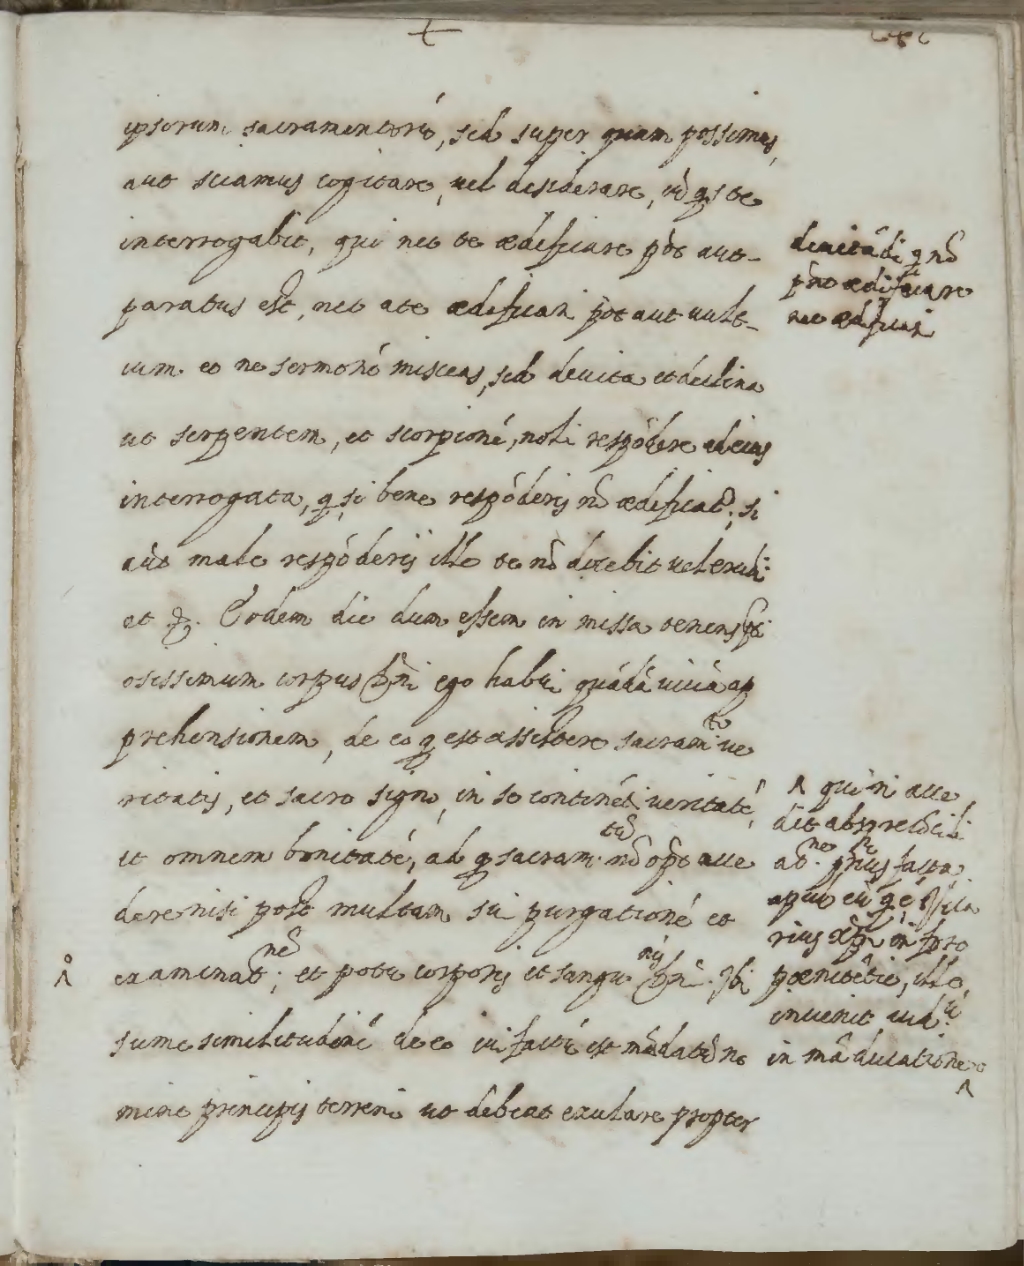 ipsorum sacramentorũ, sed super quam possimus,
aut sciamus cogitare, uel desiderare,
interrogabit, qui nec te ædificare põt aut
paratus est, nec a te ædificari põt aut uult
cum eo ne sermoné misceas, sed deuita et declina
ut serpentem, et scorpioné, noli respõdere ad eius
interrogata, q si bene respõderis nõ ædificat; si
aũt male respõderis ille te nõ docebit uel
et Eodem die dum essem in missa tenens
osissimum corpus Dñi ego habui quádá uiuá ap
prehensionem, de eo q est assistere sacramto ue
ritatis, et sacro signo, in se continéti ueritaté,
et omnem bonitaté, ad q sacramtũ nõ opõt acce
dere nisi post multam sui purgationé et
examinatnẽ; et potu corporis et sanguinis Dñi
sume similitudiné de eo cui factũ est mãdatũ no
mine principis terreni ut debeat exulare propter
deuitãdi q nõ
pñt ædificare
nec ædificari
qui ñ acce
dit abs
prius facta
apud eũ
rius in foro
pœnitẽtie, ille
inuenit
in mãducatione